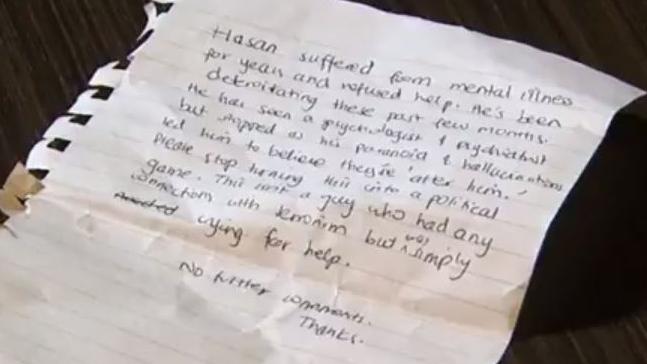 Hasan suffered from mental illness
for years and refused help. He's been
deteroitating these past few months.
He has seen a psychologist & psychiatrist
but stopped as his paranoid & hallucinations
led him to believe they're 'after him.'
Please stop turning this into a political
game. This isn't a guy who had any
connections with terrorism but was simply
crying for help.
No further comments.
Thanks.